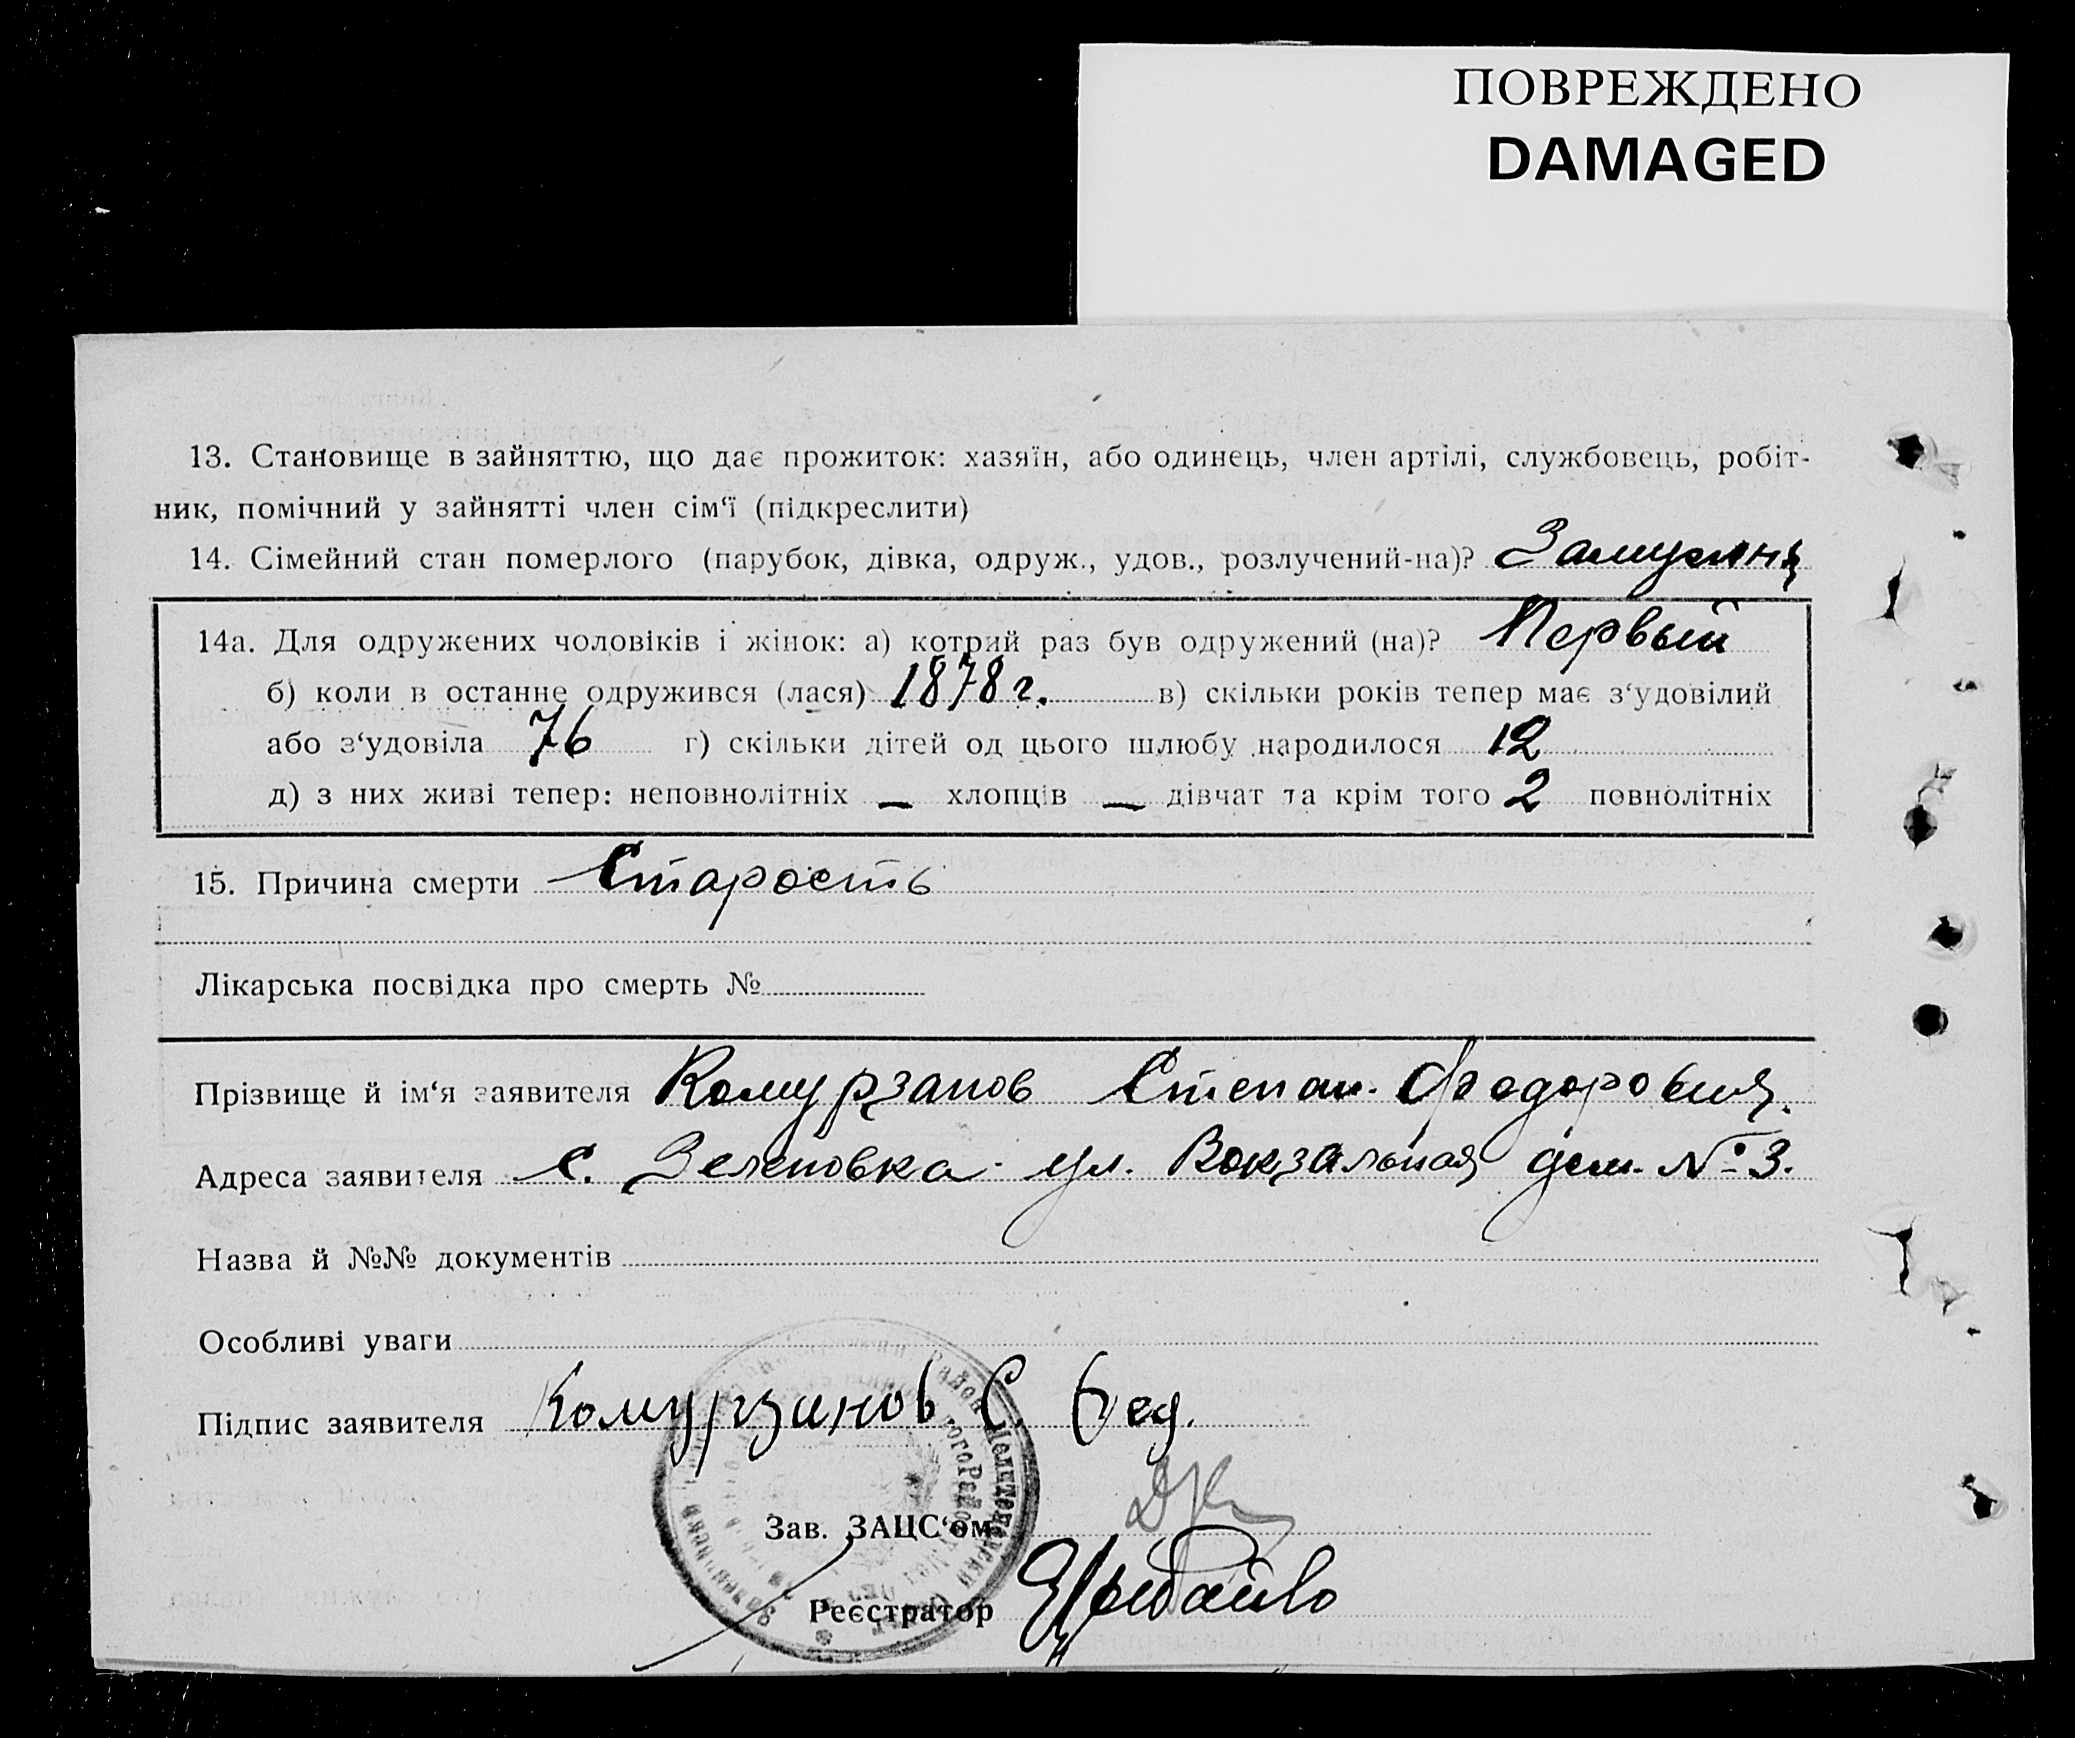 ПОВРЕЖДЕНО
DAMAGED
13. Становище в зайняттю, що дає прожиток: хазяїн, або одинець, член артілі, службовець, робіт-
ник, помічний у зайнятті член сім‘ї (підкреслити)
14. Сімейний стан померлого (парубок, дівка, одруж., удов., розлучений-на)? Замужняя
14а. Для одружених чоловіків і жінок: а) котрий раз був одружений (на)? Первый
б) коли в останнє одружився (лася) 1878 г. в) скільки років тепер має з‘удовілий
або з‘удовіла 76 г) скільки дітей од цього шлюбу народилося 12
д) з них живі тепер: неповнолітніх — хлопців — дівчат та крім того 2 повнолітніх
15. Причина смерти Старость
Лікарська посвідка про смерть №
Прізвище й ім‘я заявителя Комурзанов Степан Феодорович.
Адреса заявителя с. Зеленовка ул. Вокзальная дом. № 3.
Назва й №№ документів
Особливі уваги
Підпис заявителя Комурзанов С. Фед.
Зав. ЗАЦС‘ом
Реєстратор